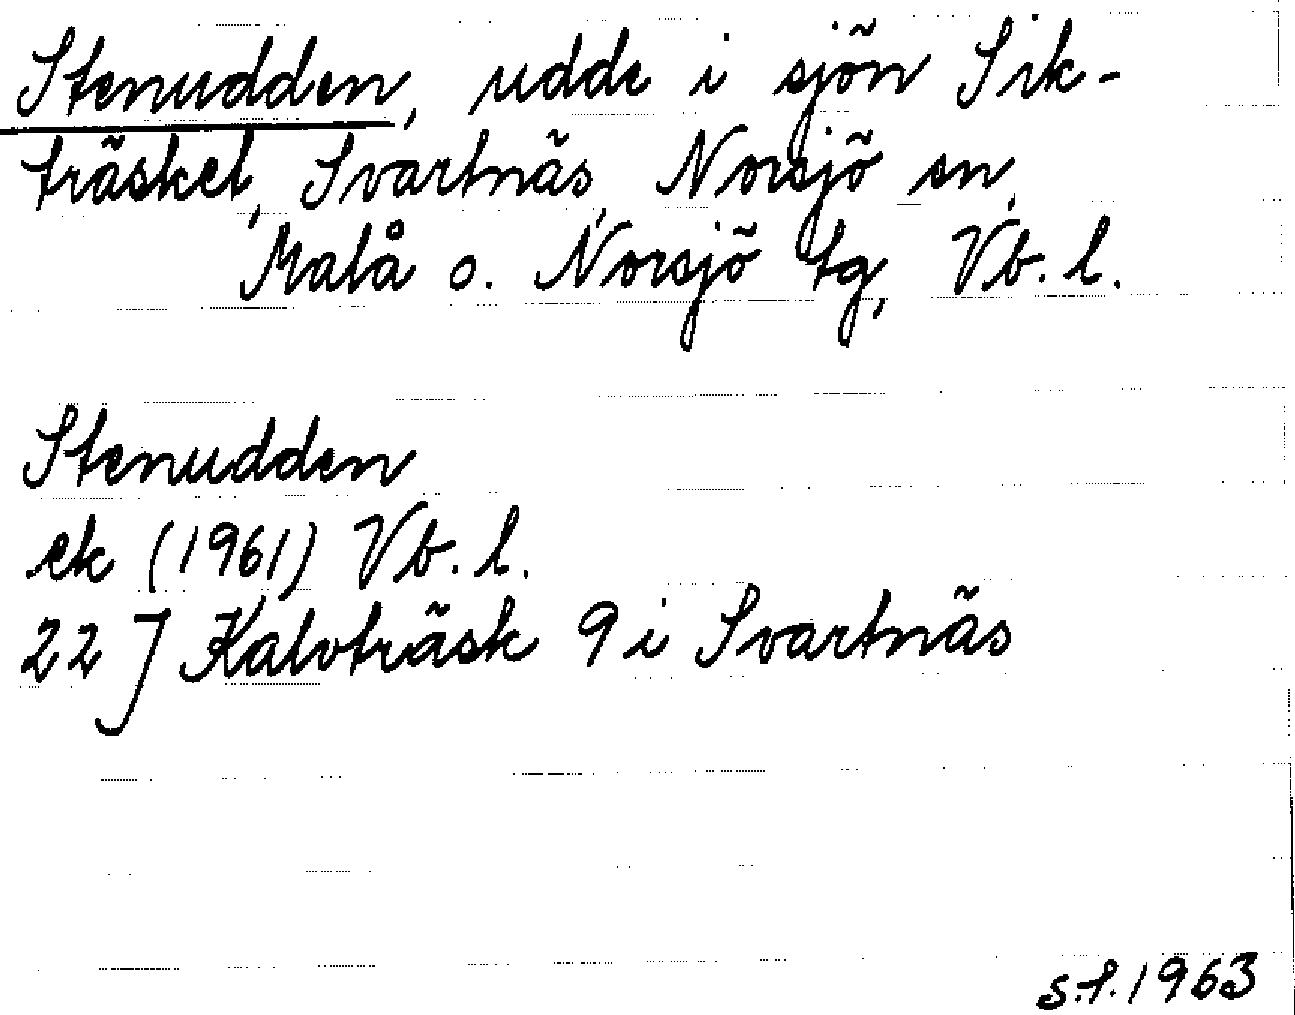 Stenudden, udde i sjön Sik-
träsket, Svartnäs, Norsjö sn,
Malå o. Norsjö tg, Vb. l.
Stenudden
ek (1961) Vb. l.
22 J Kalvträsk 9 i Svartnäs
s.f. 1963